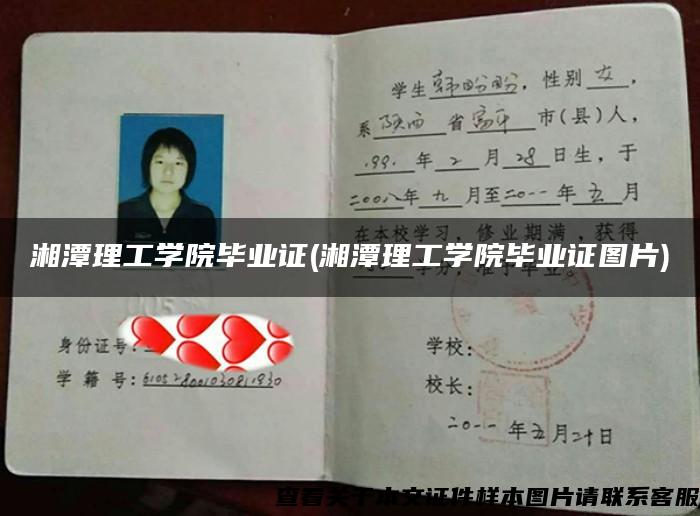 学生韩盼盼，性别女，
系陕西省富平市(县)人，
.991.年2月28日生，于
二00八年九月至二0一一年五月
在本校学习，修业期满，获得
学分，准予毕业。
湘潭理工学院毕业证(湘潭理工学院毕业证图片)
身份证号：
学籍号：
学校：
校长：
二0一一年五月二十日
查看关于本文证件样本图片请联系客服